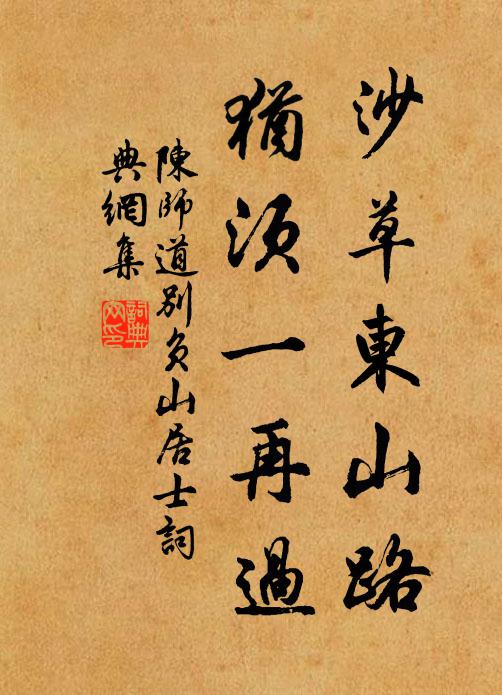 沙草東山路
猶須一再過
陳師道別負山居士詞
典網集
詞典
网印